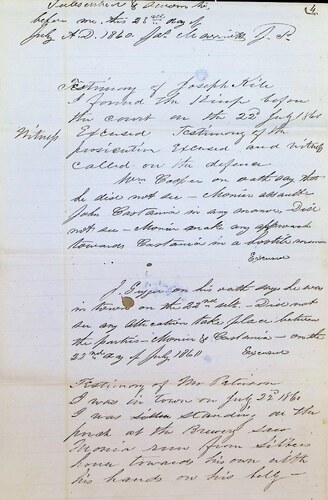 4
Subscribed & Sworn to
before me this 23rd day of
July A.D. 1860 Jas J. P.
Testimony of Joseph Kile
I found the before
the court on the 22d July 1860
Witness Excused Testimony of the
prosecution Excused and witness
called on the defence
Wm Cooper on oath say that
he dise not see — Monier assault
John Castania in any manner Dise
not see — Monier make any approach
towards Castania in a hostile manner
Excused
J. on his oath says he was
in town on the 22nd — Dise not
see any altercation take place between
the parties — Monier & Castania — on the
22nd day of July 1860 Excused
Testimony of Mr Peterson
I was in town on July 22d 1860
I was standing on the
porch at the Brewery saw
Monier run from
house towards his own with
his hands on his belly —